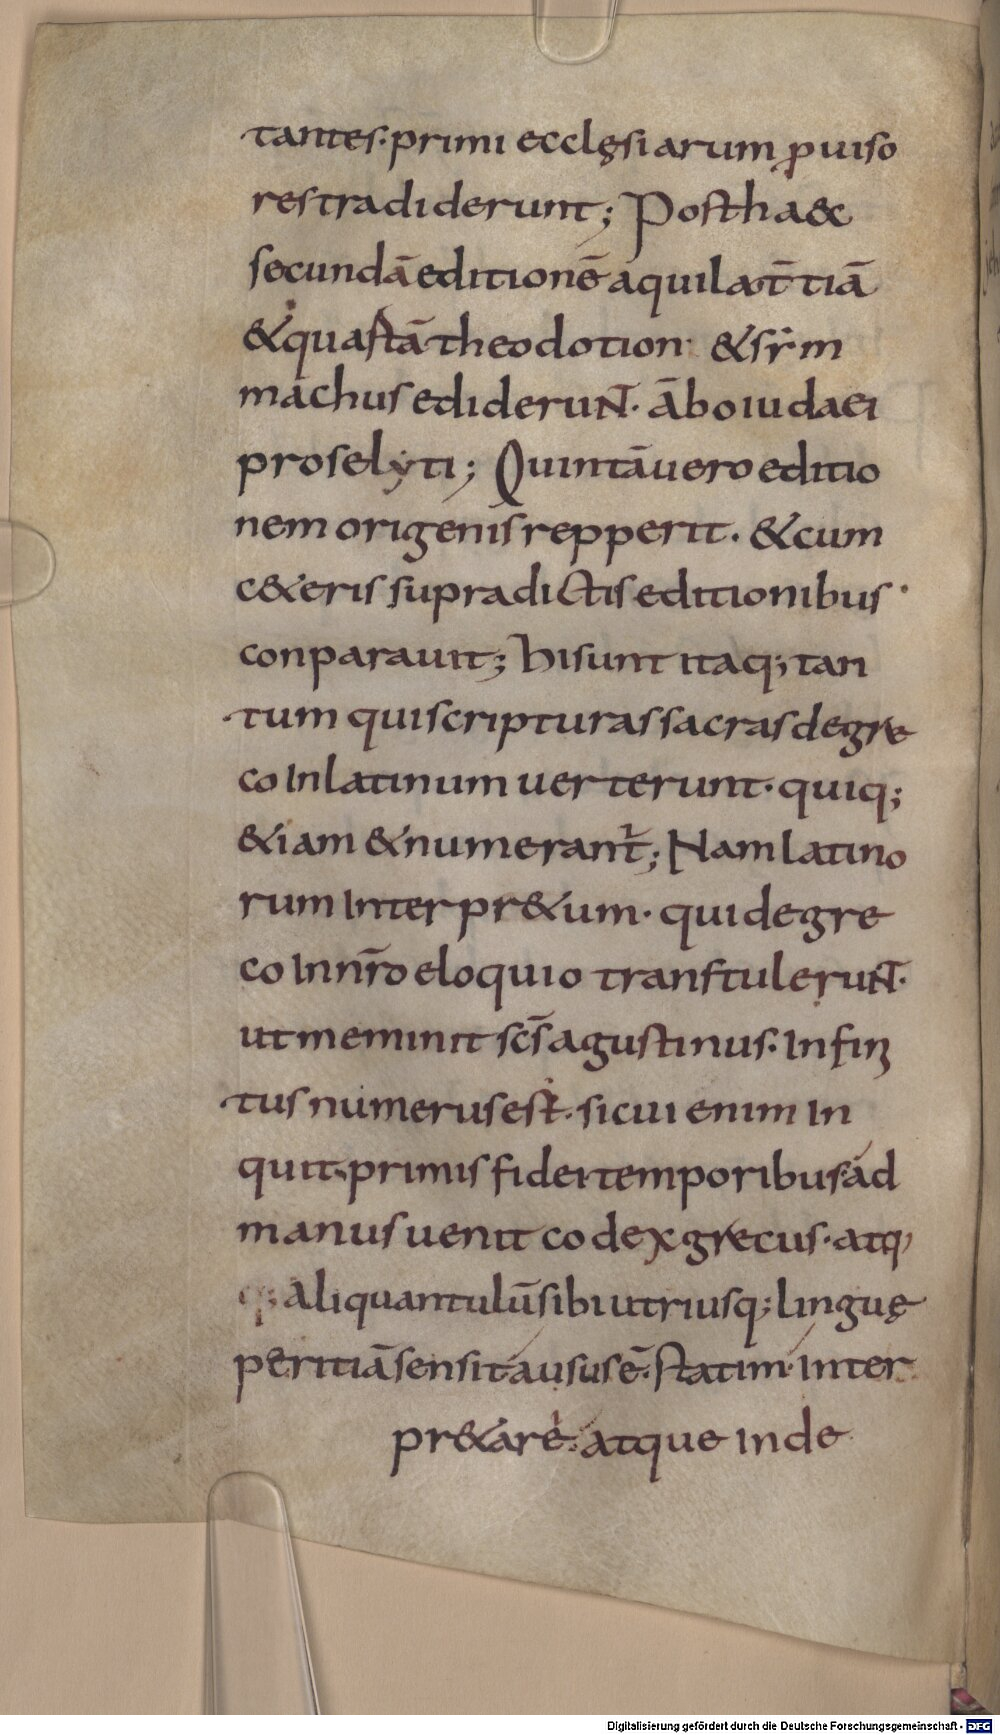 tantes. primi ecclęsiarum ꝓuiso
res tradiderunt; Post ha&
secundā editionē aquila. t̄tiā
& quartā theodotion. & sẏm
machus ediderunt. ābo iudaei
proselyti; Quintā uero editio
nem origenis repperit. & cum
c&eris supradictis editionibus.
conparauit; hi sunt itaq; tan
tum qui scripturas sacras de gre
co in latinum uerterunt. quiq;
&iam & numerant̄; Nam latino
rum interpr&um. qui de gre
co in nr̄o eloquio transtulerunt.
ut meminit scs̄ agustinus. infini
tus numerus est. sicui enim in
quit. primis fidei temporibus ad
manus uenit codex grecus. atq,
q; aliquantulū sibi utriusq; linguę
peritiā sensit. ausus ē. statim. inter
pr&are. atque inde
Digitalisierung gefördert durch die Deutsche Forschungsgemeinschaft - DFG